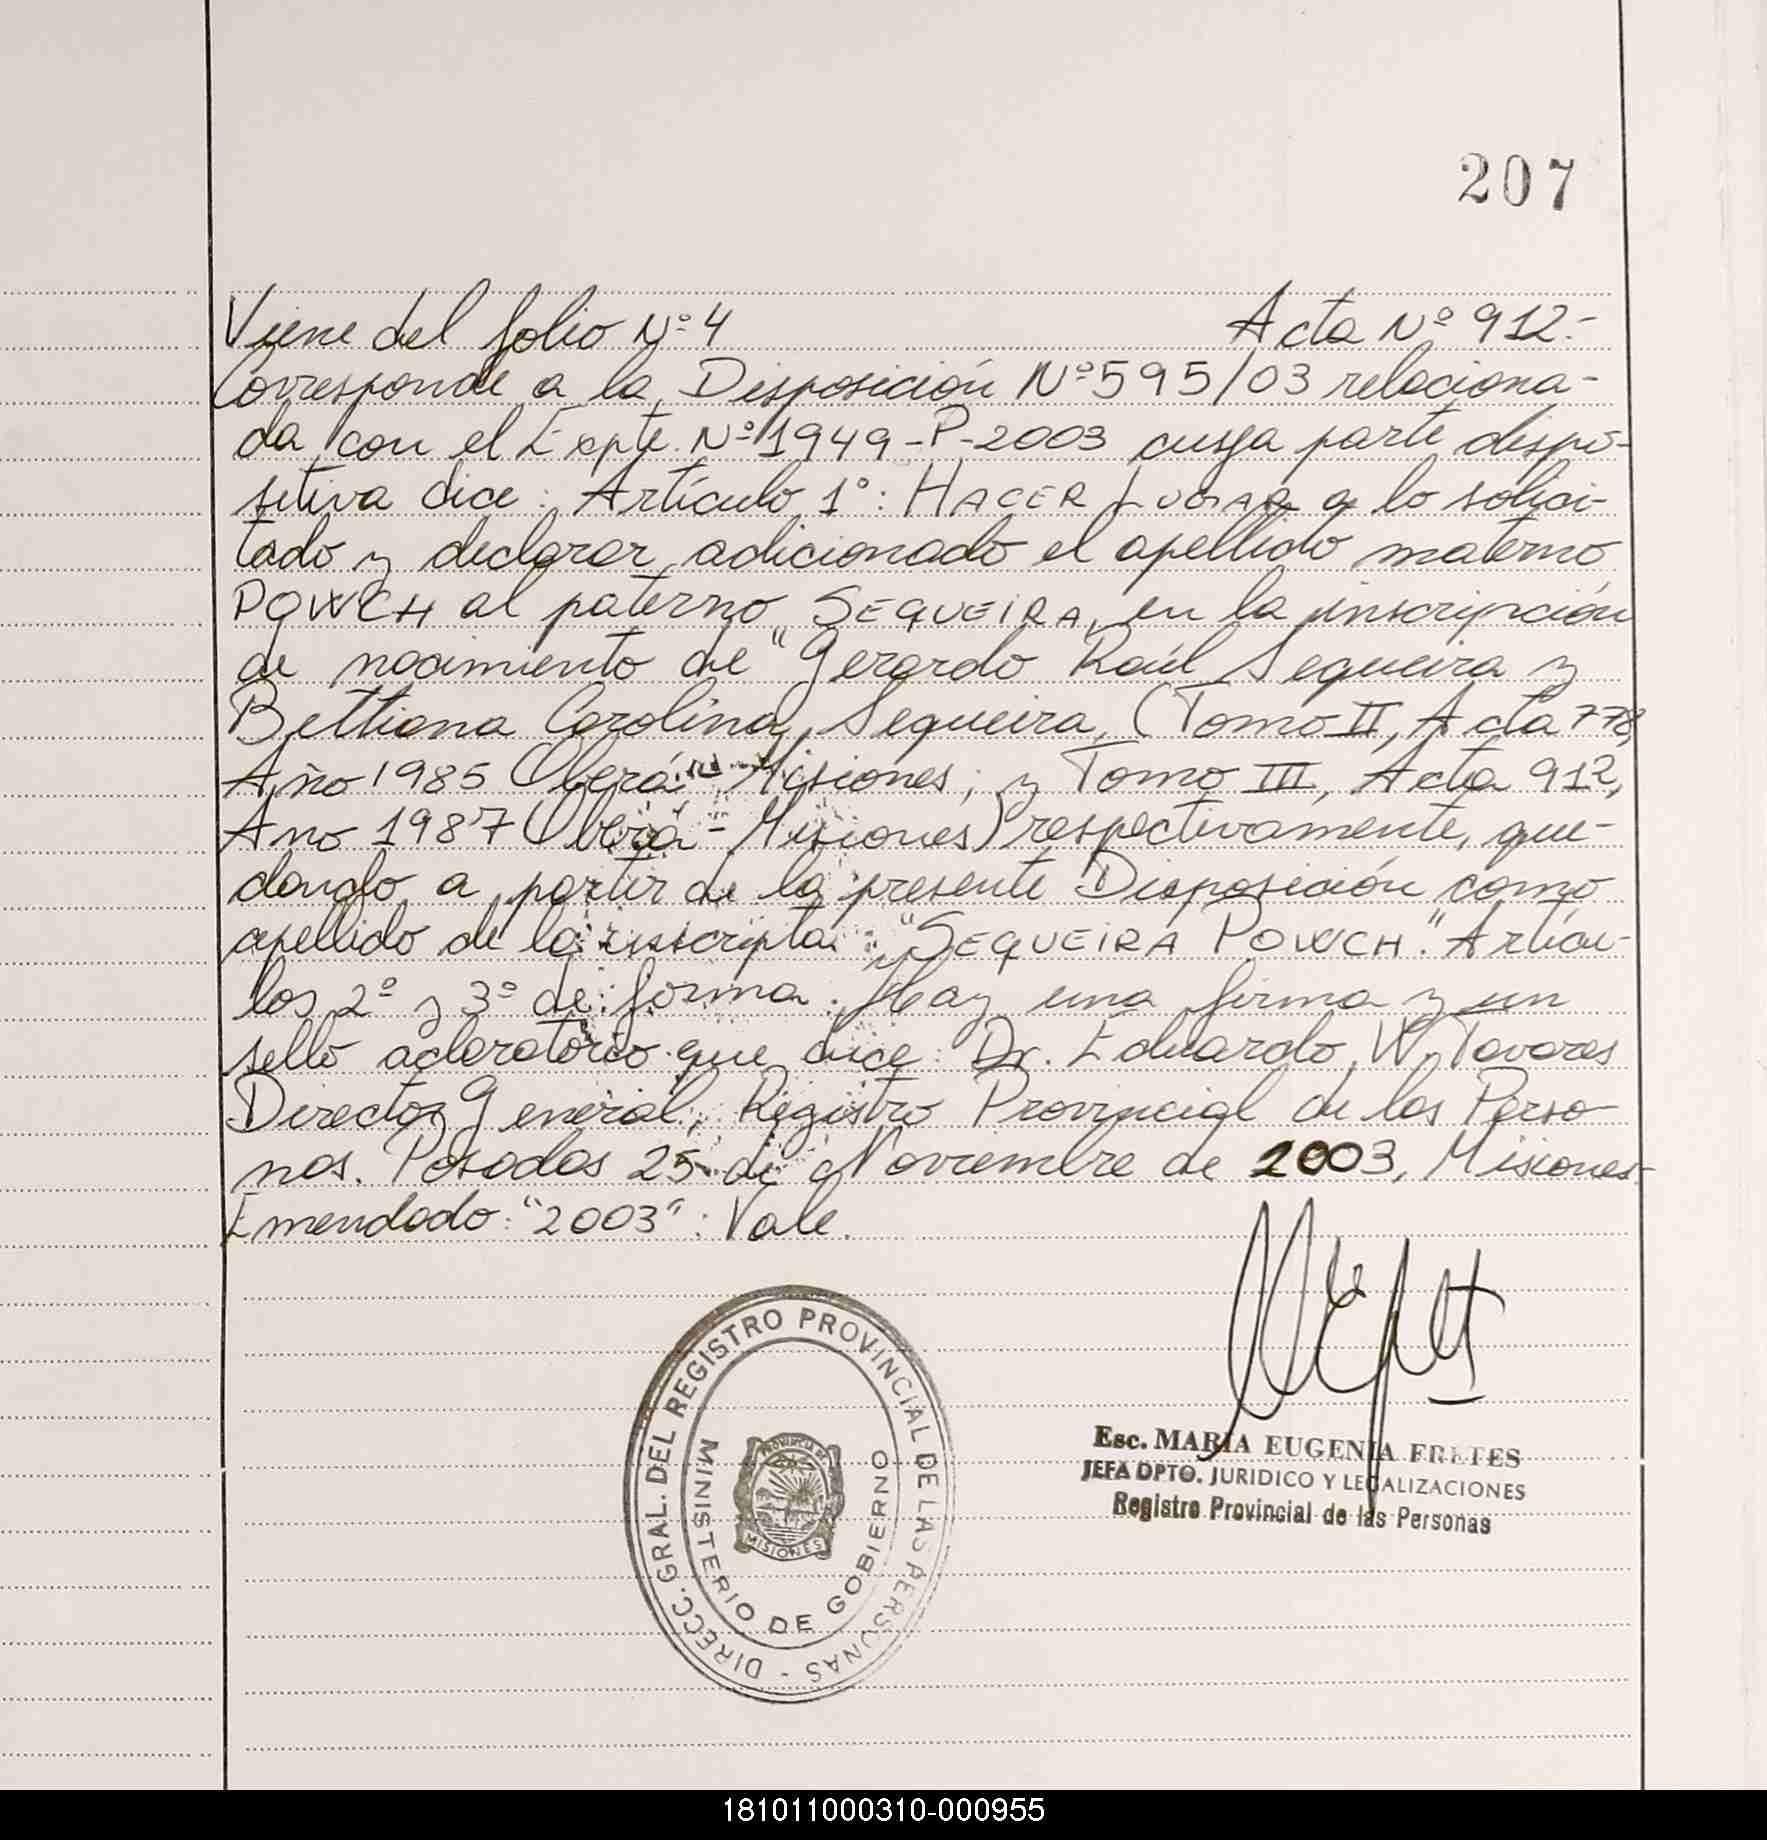 207
Viene del folio Nº 4 Acta Nº 912.-
Corresponde a la Disposición Nº 595/03 relaciona-
da con el Expte. Nº 1949-P-2003 cuya parte dispo-
sitiva dice: Artículo 1º: HACER LUGAR a lo solici-
tado y declarar adicionado el apellido materno
POWCH al paterno SEQUEIRA, en la inscripción
de nacimiento de "Gerardo Raúl Sequeira y
Bettiana Carolina Sequeira, (Tomo II, Acta 778,
Año 1985 Oberá - Misiones; y Tomo III, Acta 912,
Año 1987 Oberá - Misiones) respectivamente, que-
dando a partir de la presente Disposición como
apellido de la inscripta: "SEQUEIRA POWCH." Artícu-
los 2º y 3º de forma. Hay una firma y un
sello aclaratorio que dice: Dr. Eduardo W. Tavares
Director General, Registro Provincial de las Perso-
nas. Posadas 25 de Noviembre de 2003, Misiones.-
Emendado: "2003": Vale.
DIRECC. GRAL. DEL REGISTRO PROVINCIAL DE LAS PERSONAS -
MINISTERIO DE GOBIERNO
PROVINCIA DE
MISIONES
Esc. MARIA EUGENIA FRETES
JEFA DPTO. JURIDICO Y LEGALIZACIONES
Registro Provincial de las Personas
181011000310-000955